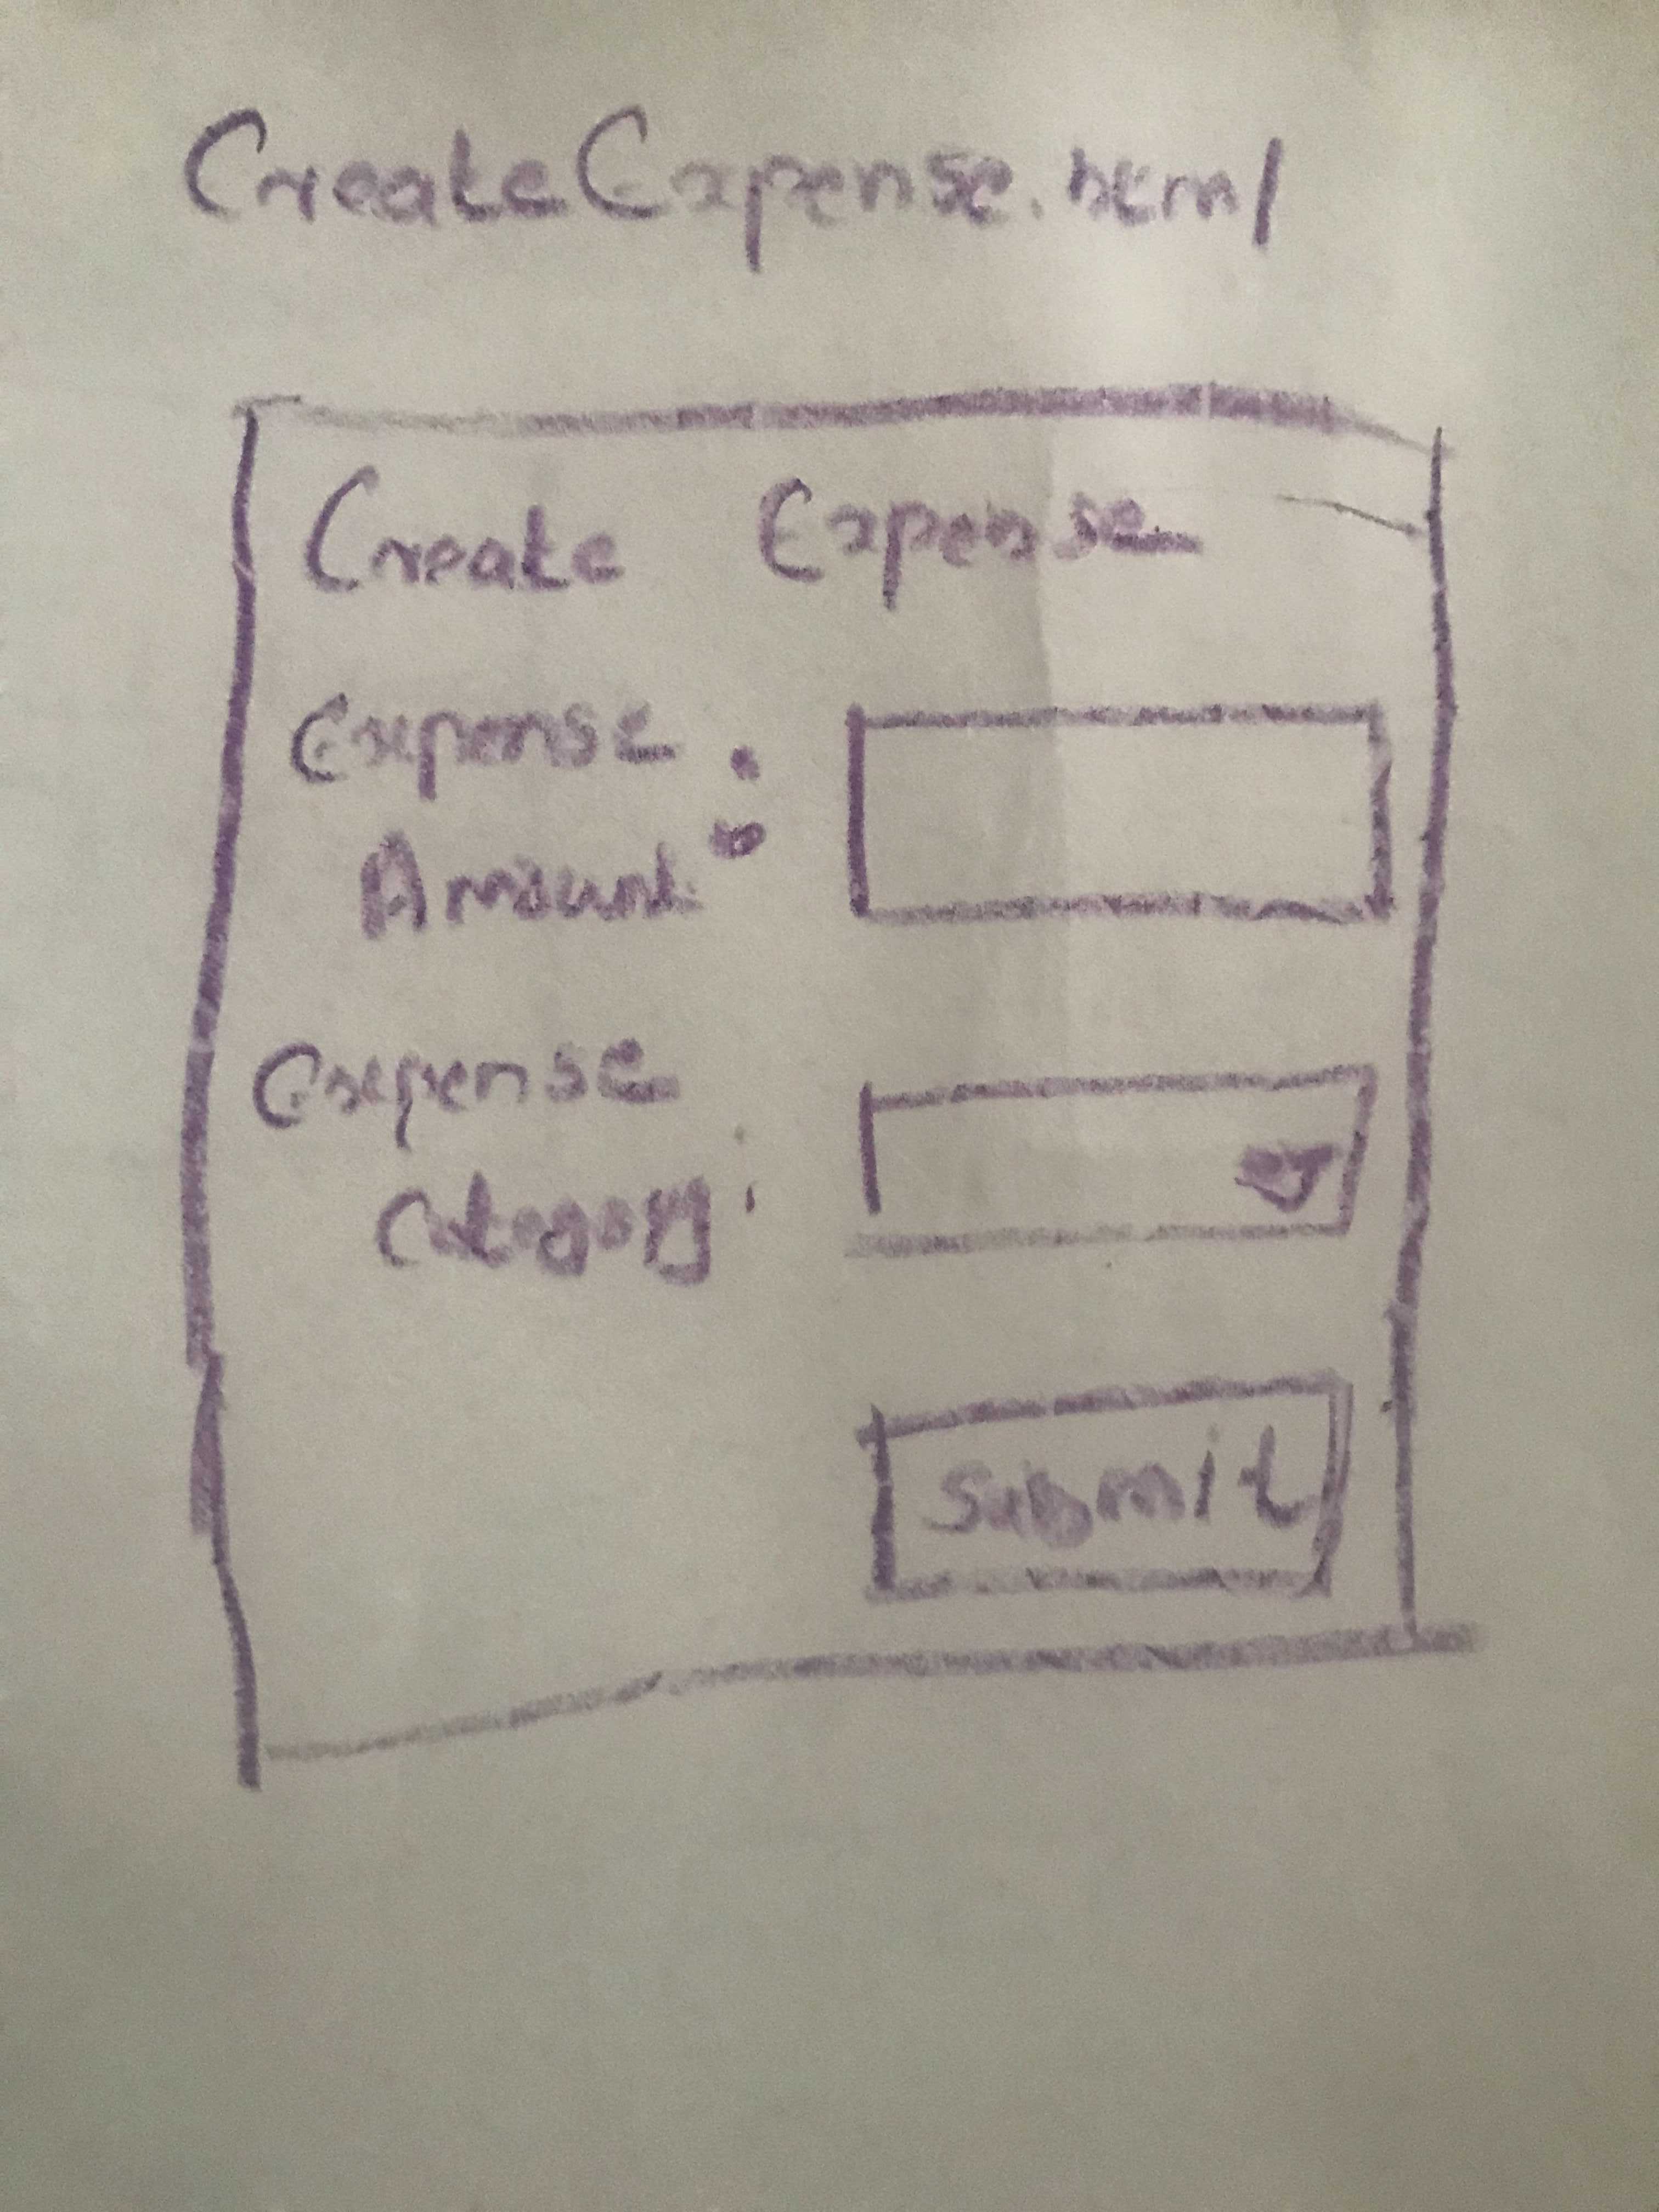 CreateExpense.html
Create Expense
Expense
Amount :
Expense
Category :
Submit